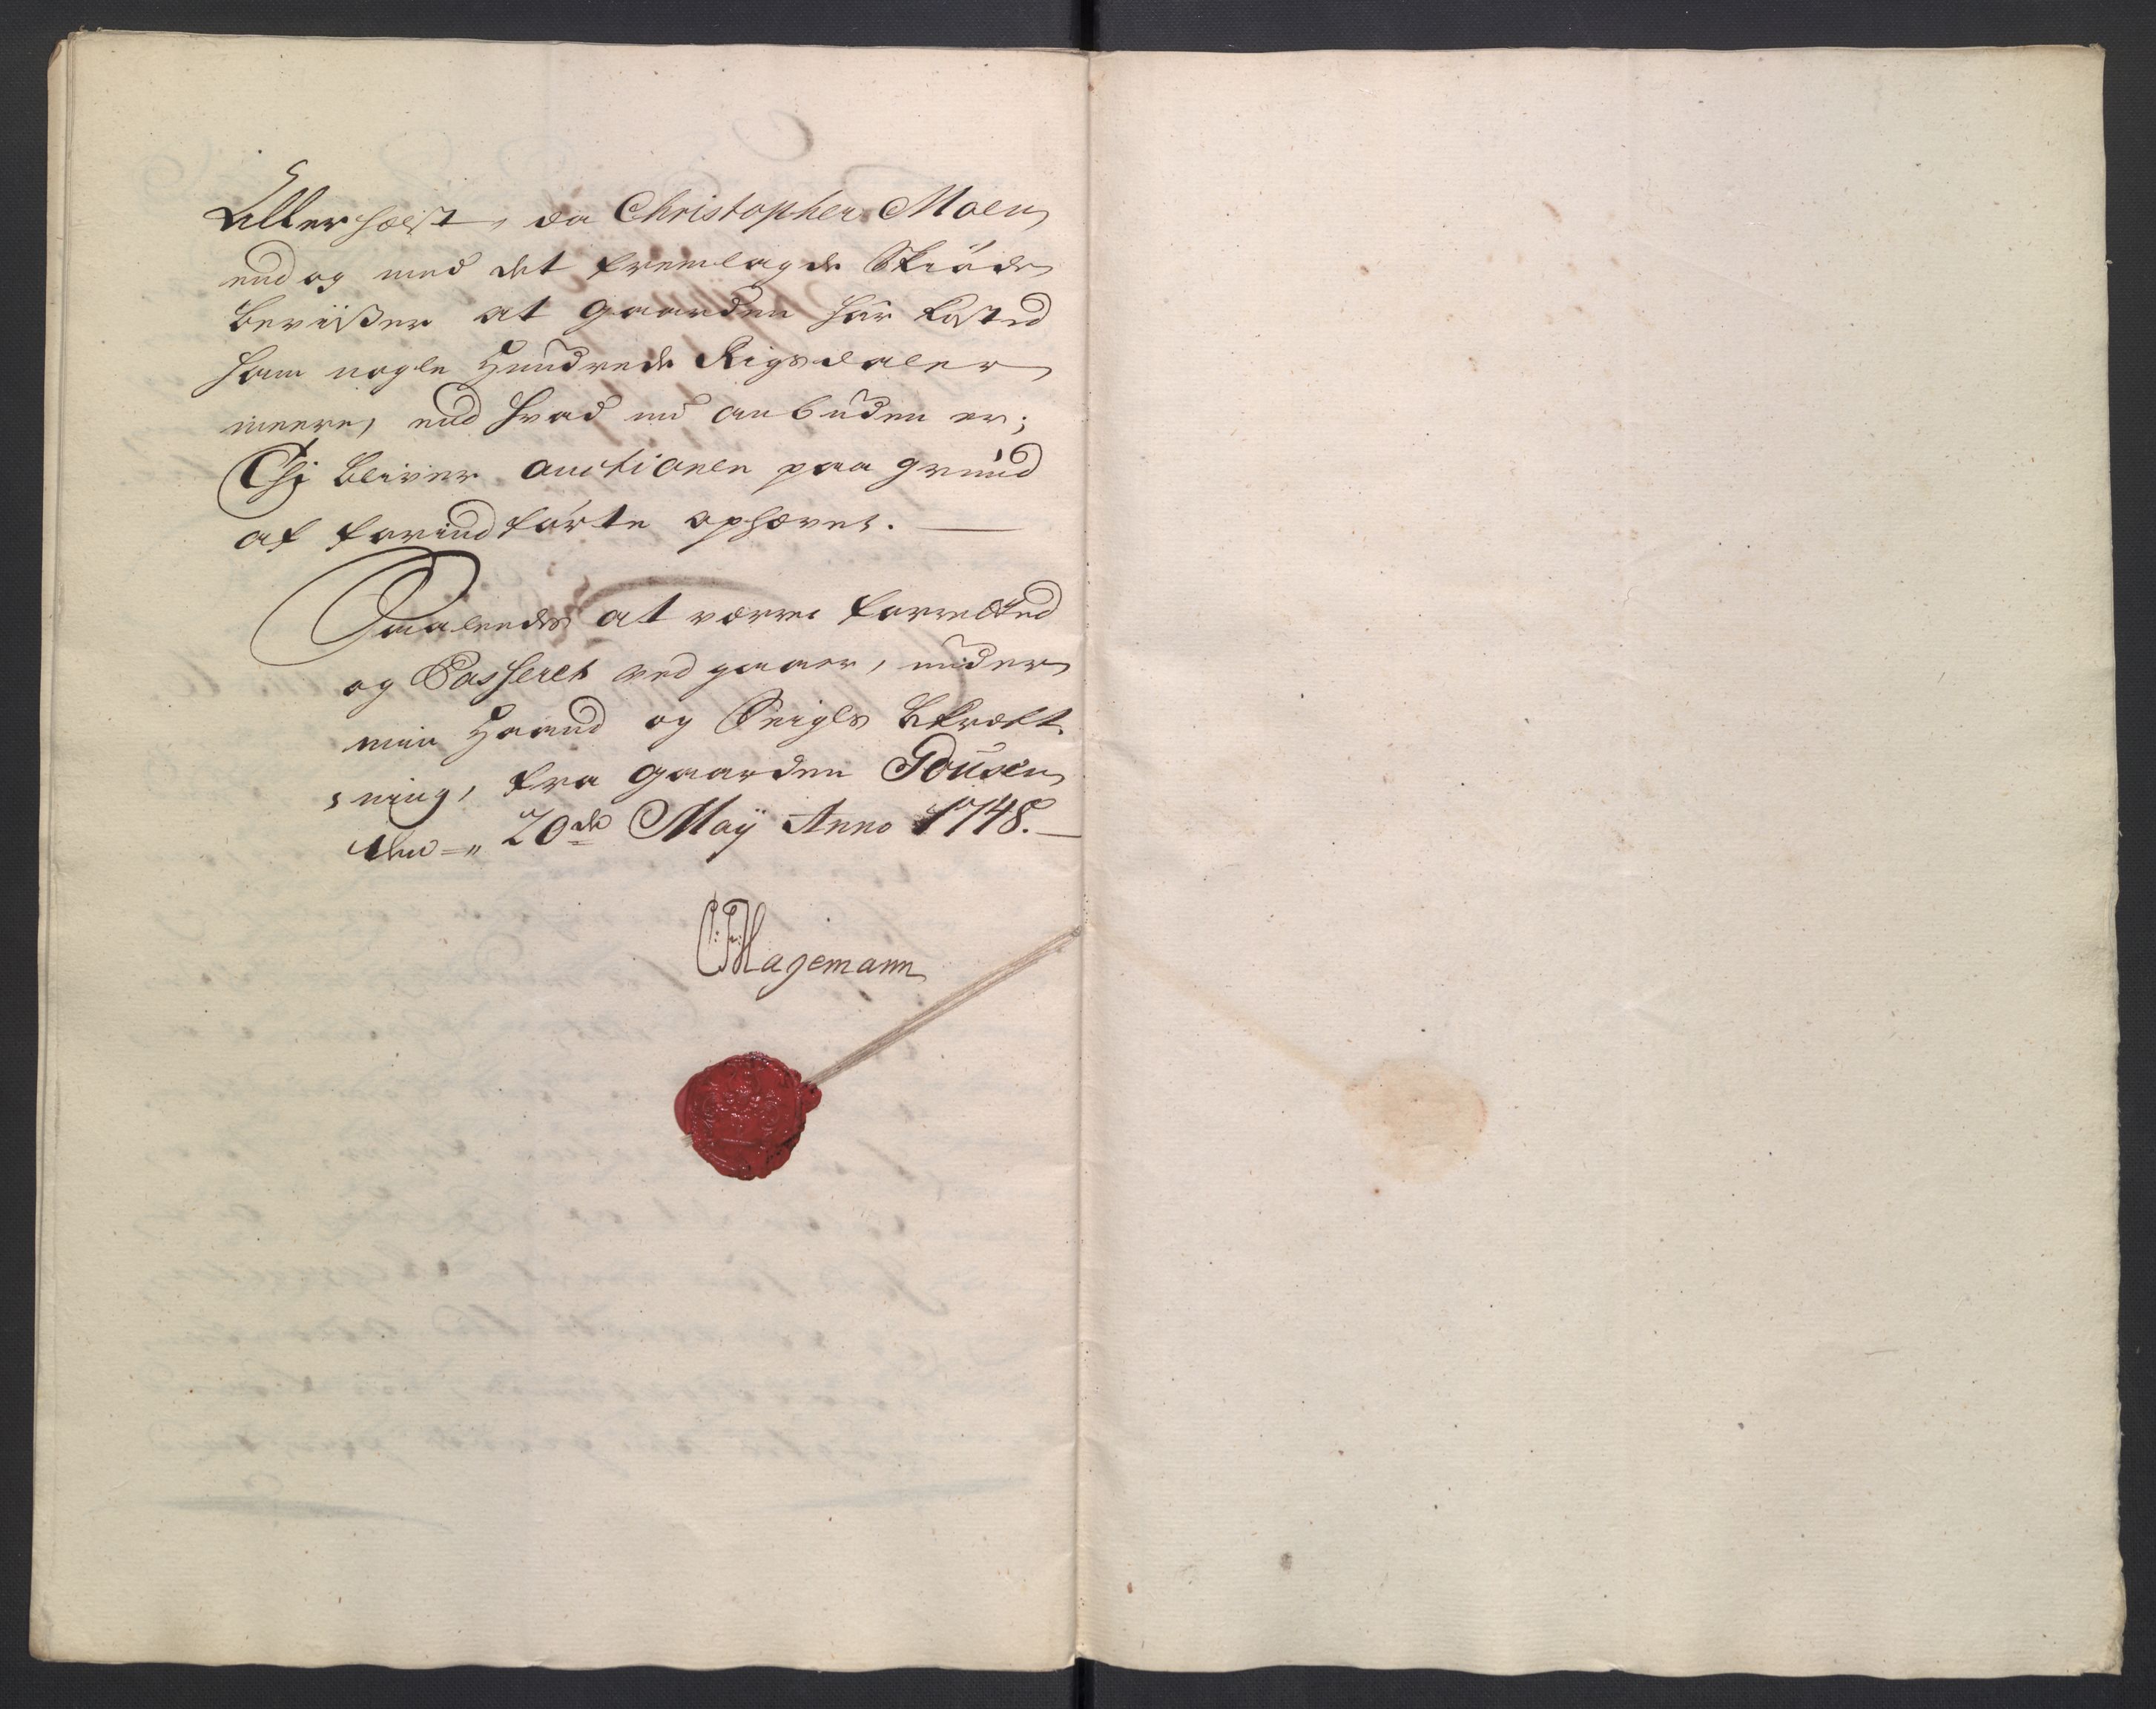 Allerhelst, da Christopher Moen
endog med det fremlagde Skiøde
beviißer at gaarden har kosted
ham nogle Hundrede Rigsdaler
meere, end hvad nu anbuden er;
Thi bliver auctionen paa grund
af forindførte ophævet. —
Saaledes at værre forretted
og Passeret ved gaaer, under
min Haand og Seigls bekræft„
„ning, fra gaarden Gousen
den =„ 20de Maÿ Anno 1748. —
C: Fr: Hagemann